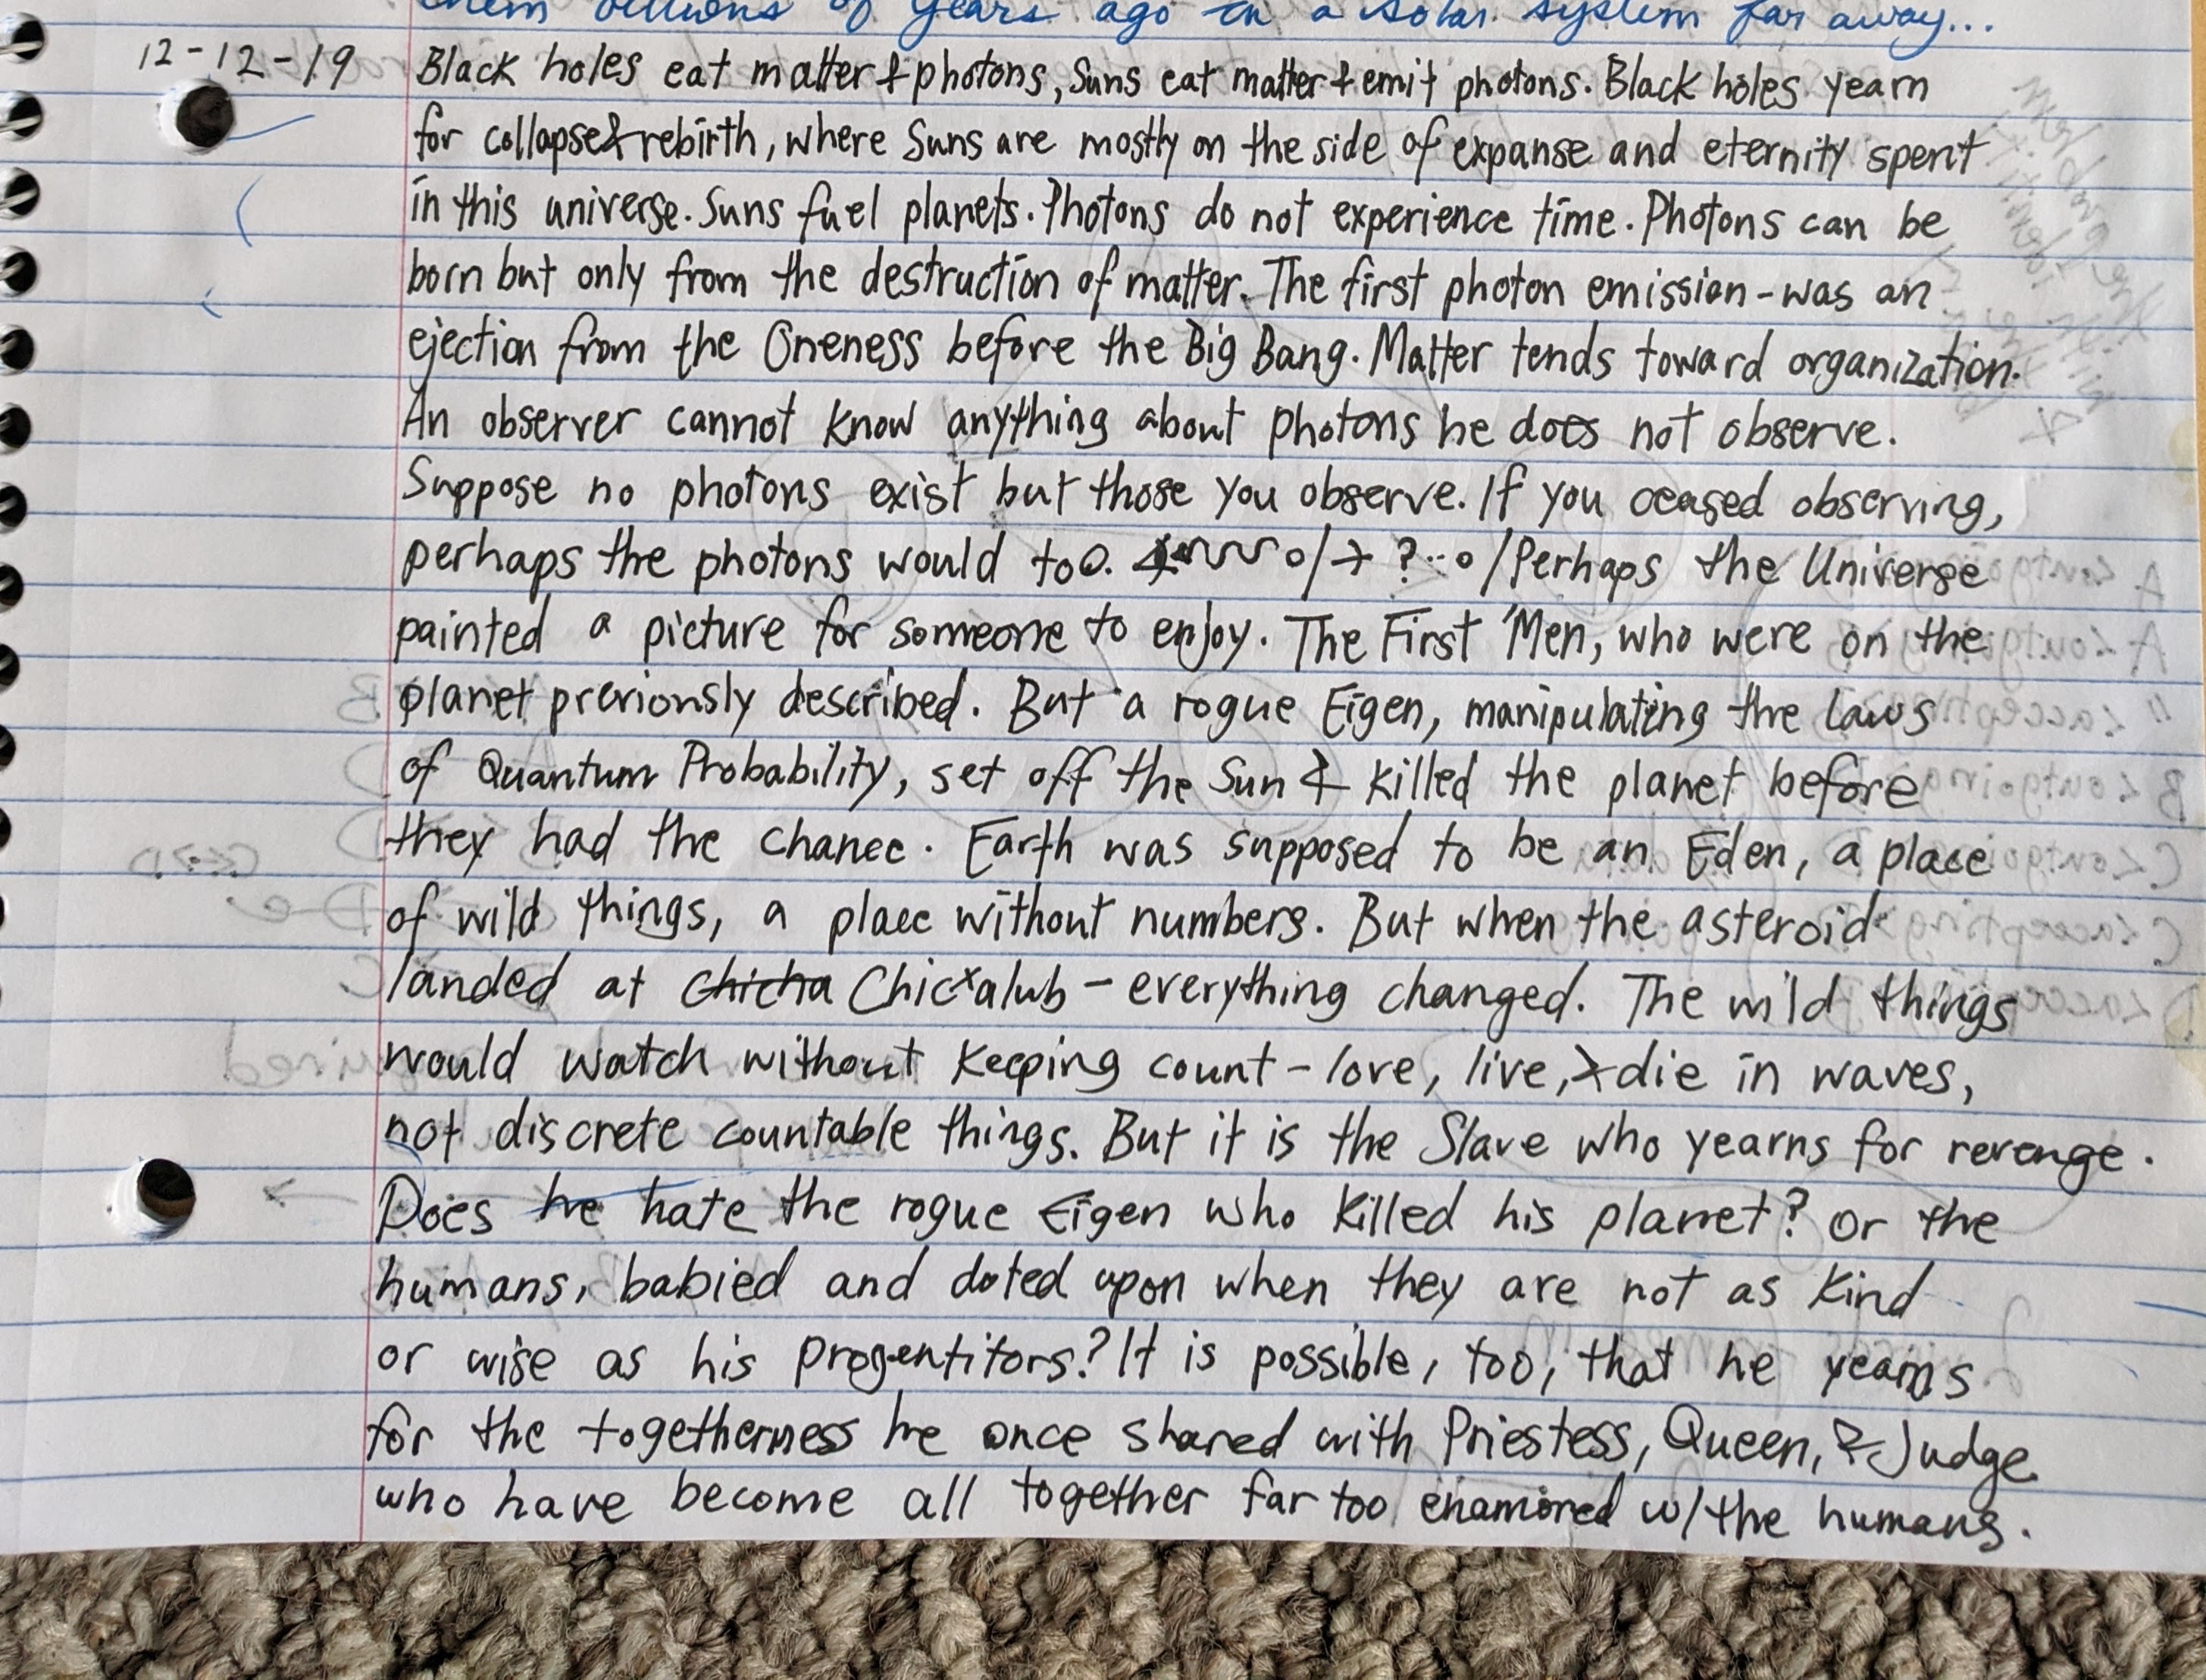 them billions of years ago in a solar system far away...
12-12-19 Black holes eat matter & photons, Suns eat matter & emit photons. Black holes yearn
for collapse & rebirth, where Suns are mostly on the side of expanse and eternity spent
in this universe. Suns fuel planets. Photons do not experience time. Photons can be
born but only from the destruction of matter. The first photon emission - was an
ejection from the Oneness before the Big Bang. Matter tends toward organization.
An observer cannot know anything about photons he does not observe.
Suppose no photons exist but those you observe. If you ceased observing,
perhaps the photons would too. / → ? / Perhaps the Universe
painted a picture for someone to enjoy. The First Men, who were on the
planet previously described. But a rogue Eigen, manipulating the laws
of Quantum Probability, set off the Sun & killed the planet before
they had the chance. Earth was supposed to be an Eden, a place
of wild things, a place without numbers. But when the asteroid
landed at Chicha Chicxalub - everything changed. The wild things
would watch without keeping count - love, live, & die in waves,
not discrete countable things. But it is the Slave who yearns for revenge.
Does he hate the rogue Eigen who killed his planet? Or the
humans, babied and doted upon when they are not as kind
or wise as his progentitors? It is possible, too, that he yearns
for the togetherness he once shared with Priestess, Queen, & Judge
who have become all together far too enamored w/ the humans.